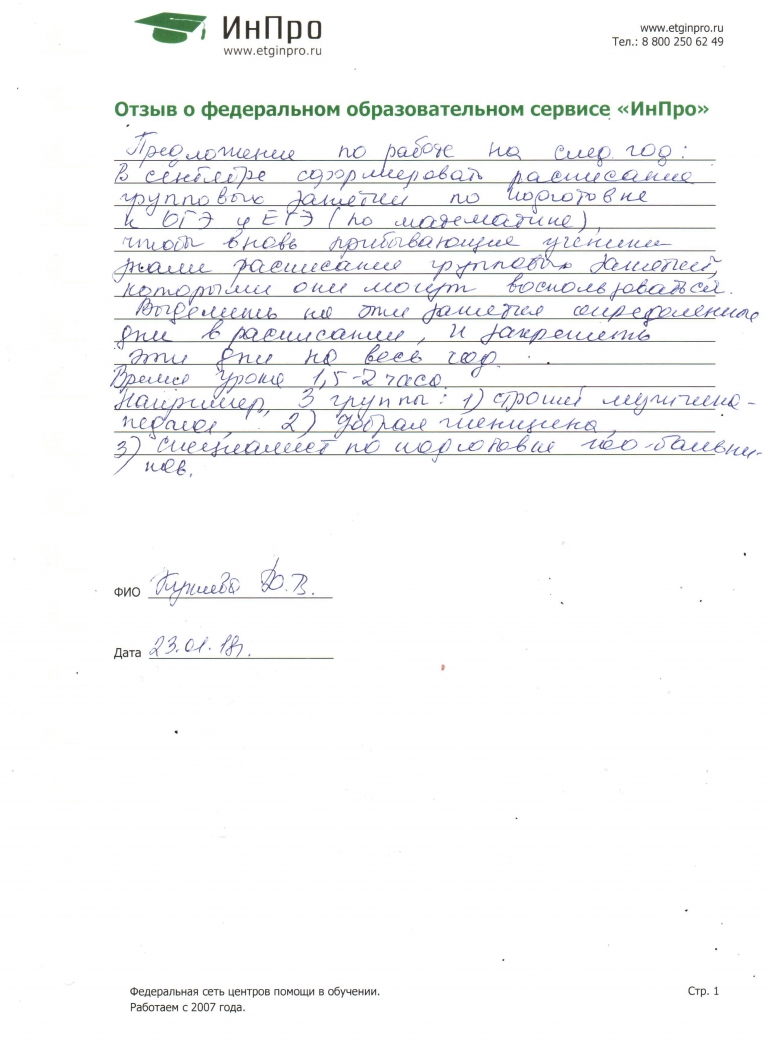 ИнПро
www.etginpro.ru
www.etginpro.ru
Тел.: 8 800 250 62 49
Отзыв о федеральном образовательном сервисе «ИнПро»
Предложения по работе на след. год:
В сентябре сформировать расписание
групповых занятий по подготовке
к ОГЭ и ЕГЭ (по математике),
чтобы вновь прибывающие ученики
знали расписание групповых занятий,
которыми они могут воспользоваться.
Выделить на эти занятия определенные
дни в расписании, и закрепить
эти дни на весь год.
Время урока 1,5-2 часа.
Например, 3 группы: 1) строгий мужчина-
педагог, 2) добрая женщина,
3) специалист по подготовке 100-бальни-
ков.
ФИО Д.В.
Дата 23.01.18г.
Федеральная сеть центров помощи в обучении.
Стр. 1
Работаем с 2007 года.